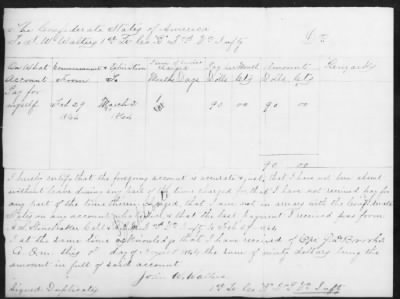 The Confederate States of America
To J. W. Walters 1st Lt Co Va Infty Dr
On What Commencement & Expiration Term of Service charged Pay per Month Amount Remarks
Account From To Months Days Dolls Cts Dolls. Cts
Pay for
myself Feb 29 March 2 90 00 90 00
1864 1864
90 00
I hereby certify that the foregoing account is accurate & just, that I have not been absent
without leave during any part of the time charged for, that I have not received pay for
any part of the time therein charged, that I am not in arrears with the Confederate
States on any account whatsoever & that the last payment I received was from
A. M. and to
I at the same time acknowledge that I have received of Capt
A Q.m. this day of 1864 the sum of ninety dollars being the
amount in full of said account
John W. Walters
Signed Duplicates 1st Lt Co Va Infty